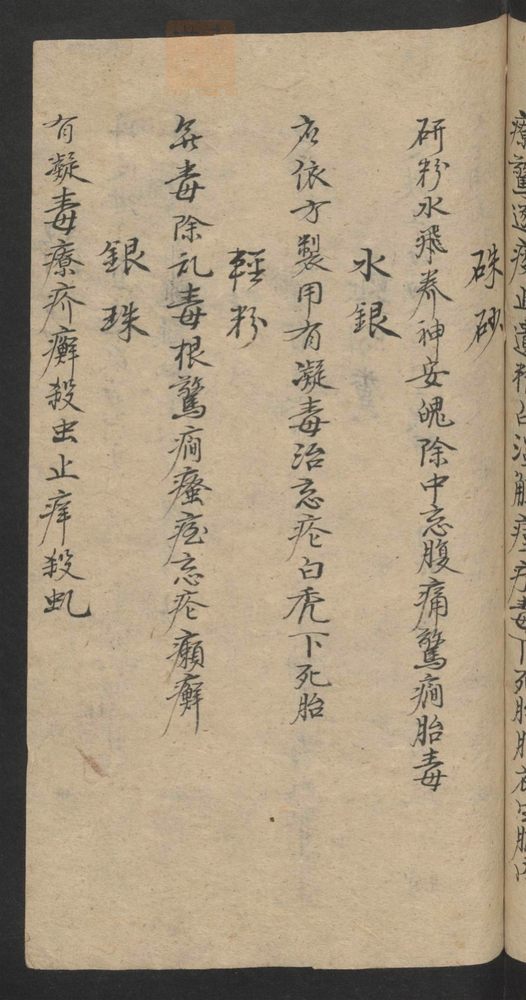 硃砂
研粉水飛养神安魄除中忘腹痛驚癎胎毒
水銀
依方製用有凝毒治忘疮白秃下死胎
輕粉
毒除乱毒根驚癎忘疮癩癬
銀珠
有凝毒療疥癬殺虫止痒殺虱